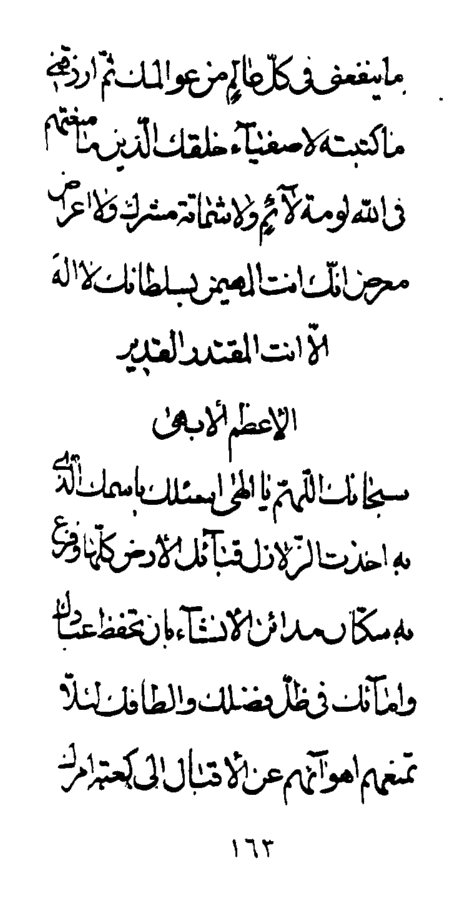 ما ينفعنی فی کلّ عالم من عوالمک ثمّ ارزقنی
ما کتبته لاصفیآء خلقک الّذین ما منعتهم
فی اللّه لومة لآئم ولا شماتة مشرک ولا اعراض
معرض انّک انت المهیمن بسلطانک لا اله
الّا انت المقتدر القدیر
الاعظم الابهی
سبحانک اللّهمّ یا الهی اسئلک باسمک الّذی
به اخذت الزّلازل قبآئل الارض کلّها و فزع
به سکّان مدائن الانشآء بان تحفظ عبادک
وامآئک فی ظلّ فضلک والطافک لئلّا
تمنعهم اهوآئهم عن الاقبال الی کعبة امرک
١٦٣